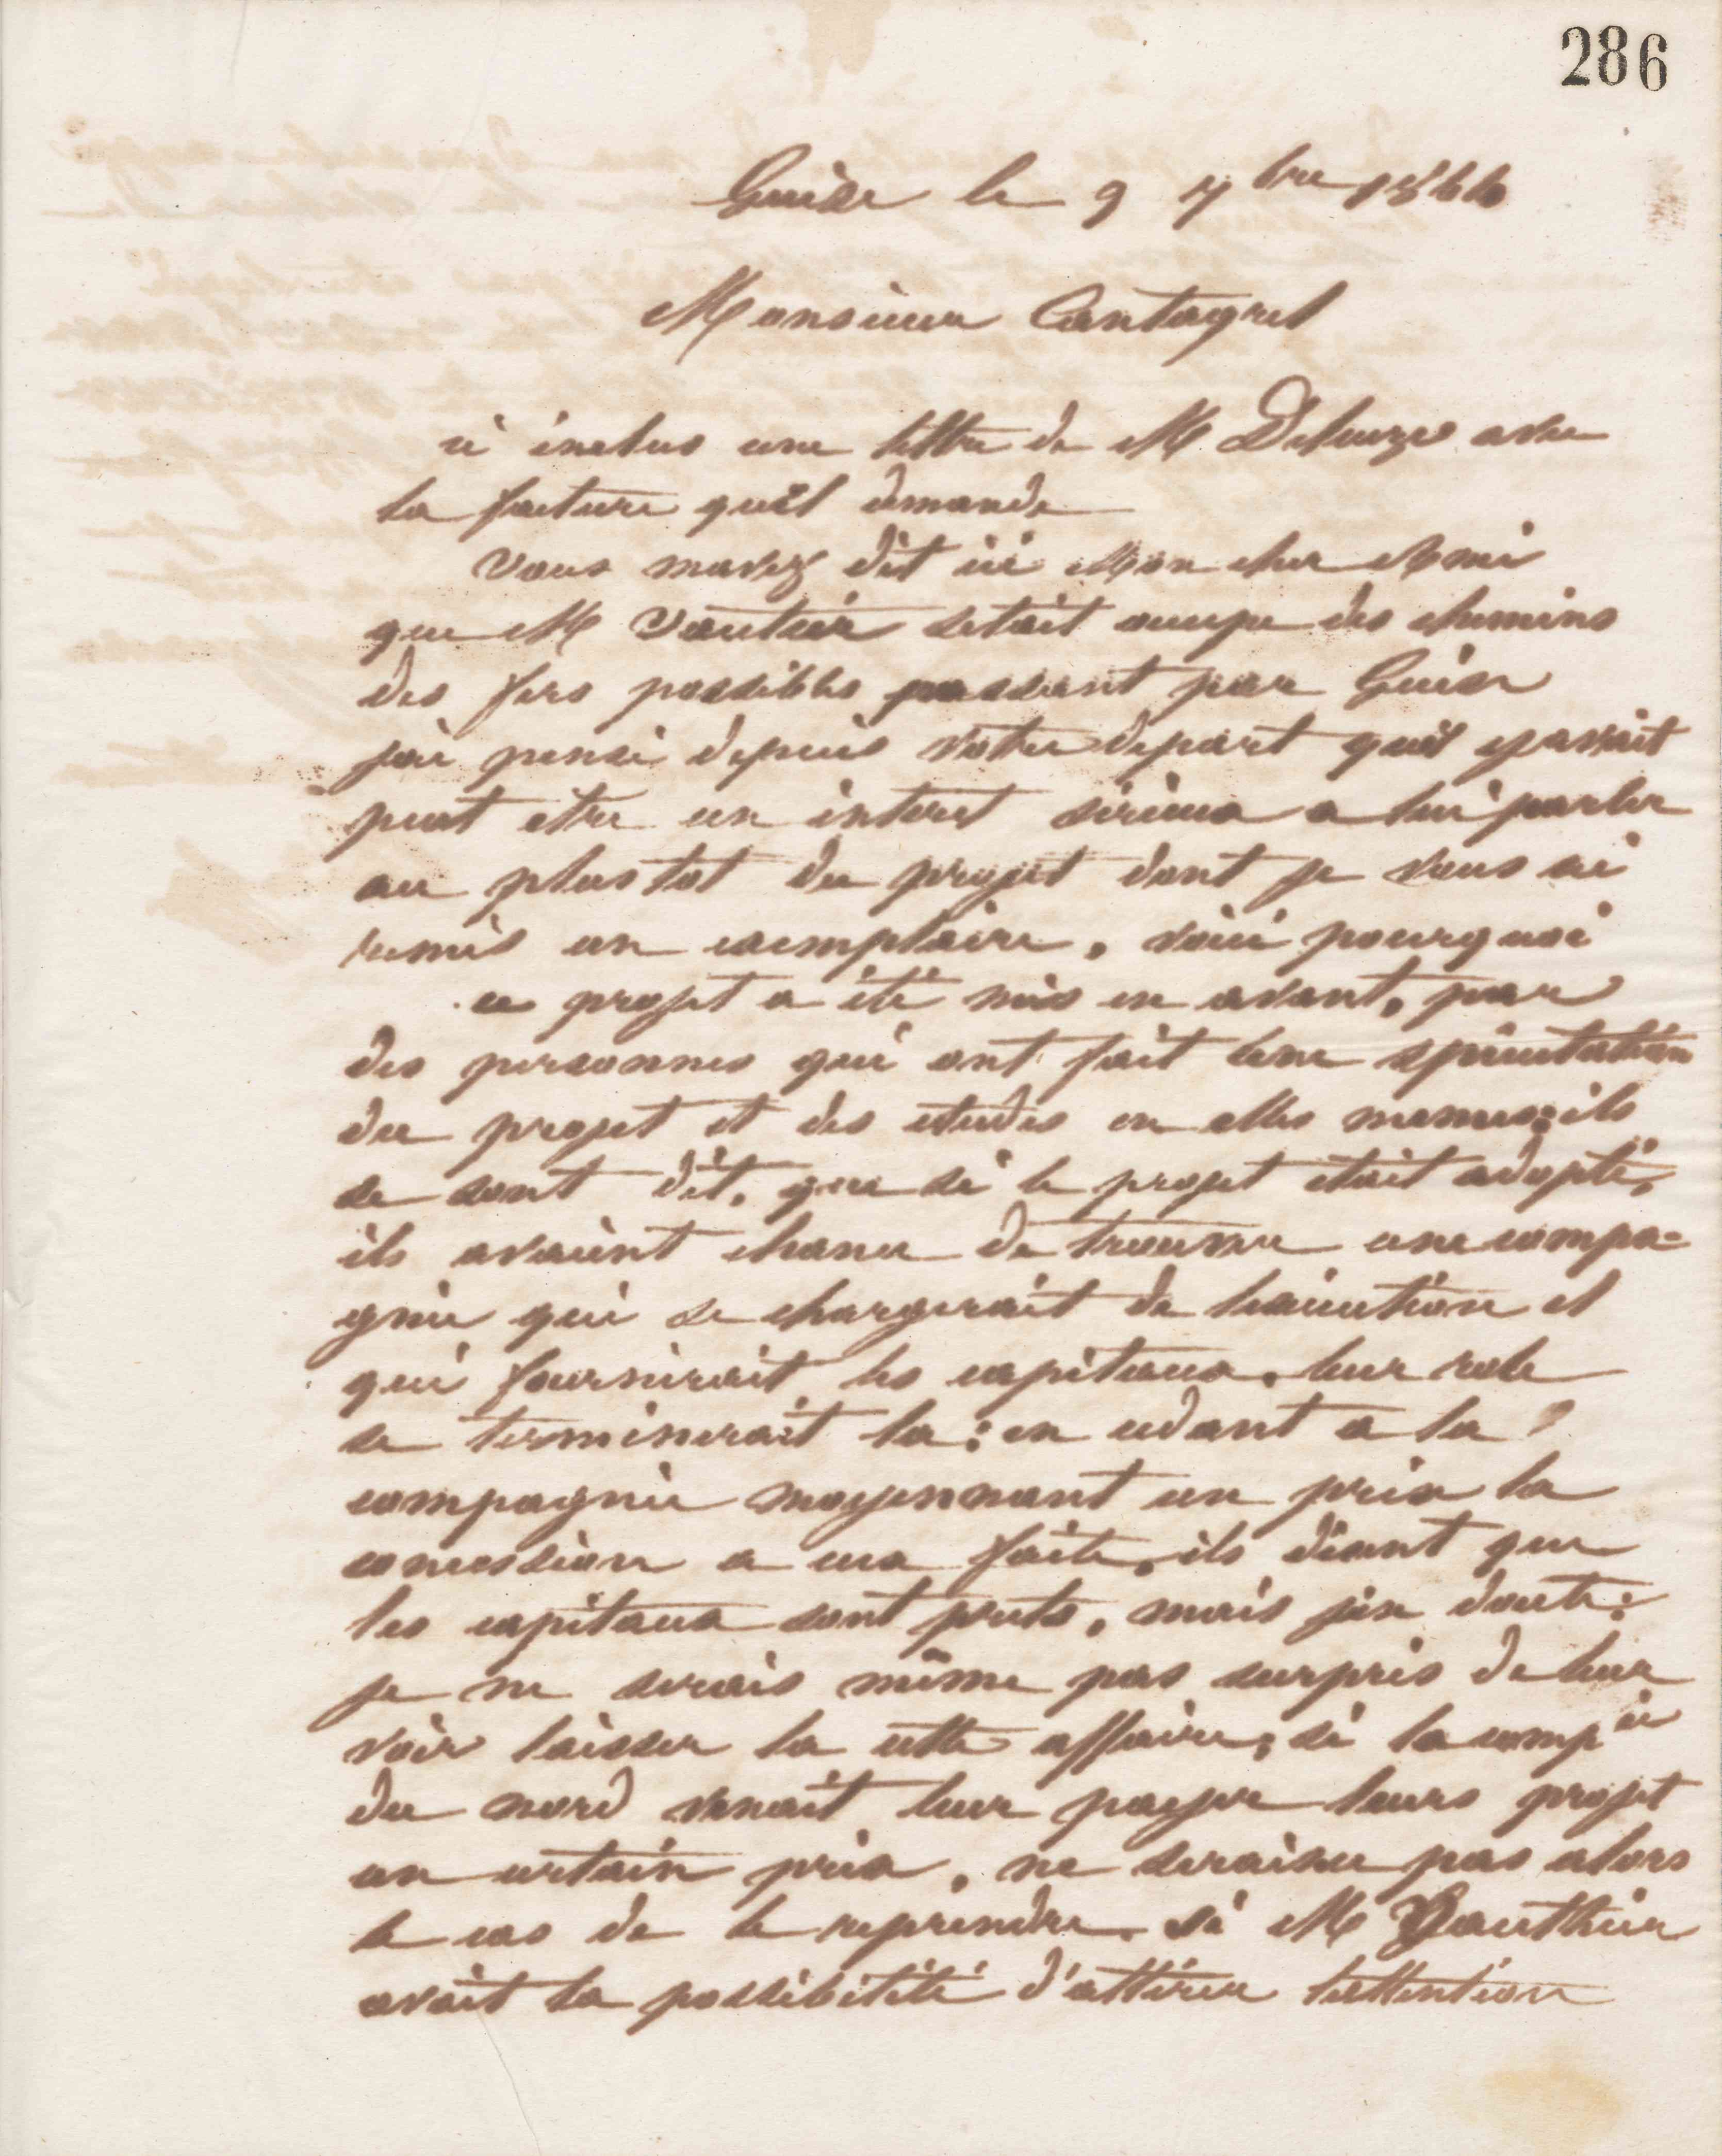 286
Guise le 9 7bre 1866
Monsieur Cantagrel
ci inclus une lettre de M. Deluze avec
la facture quil demande
Vous mavez dit ici Mon cher Ami
que M Vautier setait occupe des chemins
des fers possibles passant par Guise
jai pensé depuis votre depart quil y avait
peut etre un interet serieux a lui parler
au plus tot du projet dont je vous ai
remis un exemplaire, voici pourquoi
ce projet a été mis en avant, par
des personnes qui ont fait une spéculation
du projet et des etudes en elles memes; ils
se sont dit, que si le projet était adopté,
ils avaient chance de trouver une compa=
gnie qui se chargerait de lexécution et
qui fournirait les capitaux, leur role
se terminerait la: en cedant a la
compagnie moyennant un prix la
concession a eux faite, ils disent que
les capitaux sont prets, mais jen doute:
je ne serais même pas surpris de leur
voir laisser la cette affaire, si la compie
du nord venait leur payer leurs projet
un certain prix, ne seraisce pas alors
le cas de le reprendre. si M Vauthier
avait la possibilité d'attirer lattention